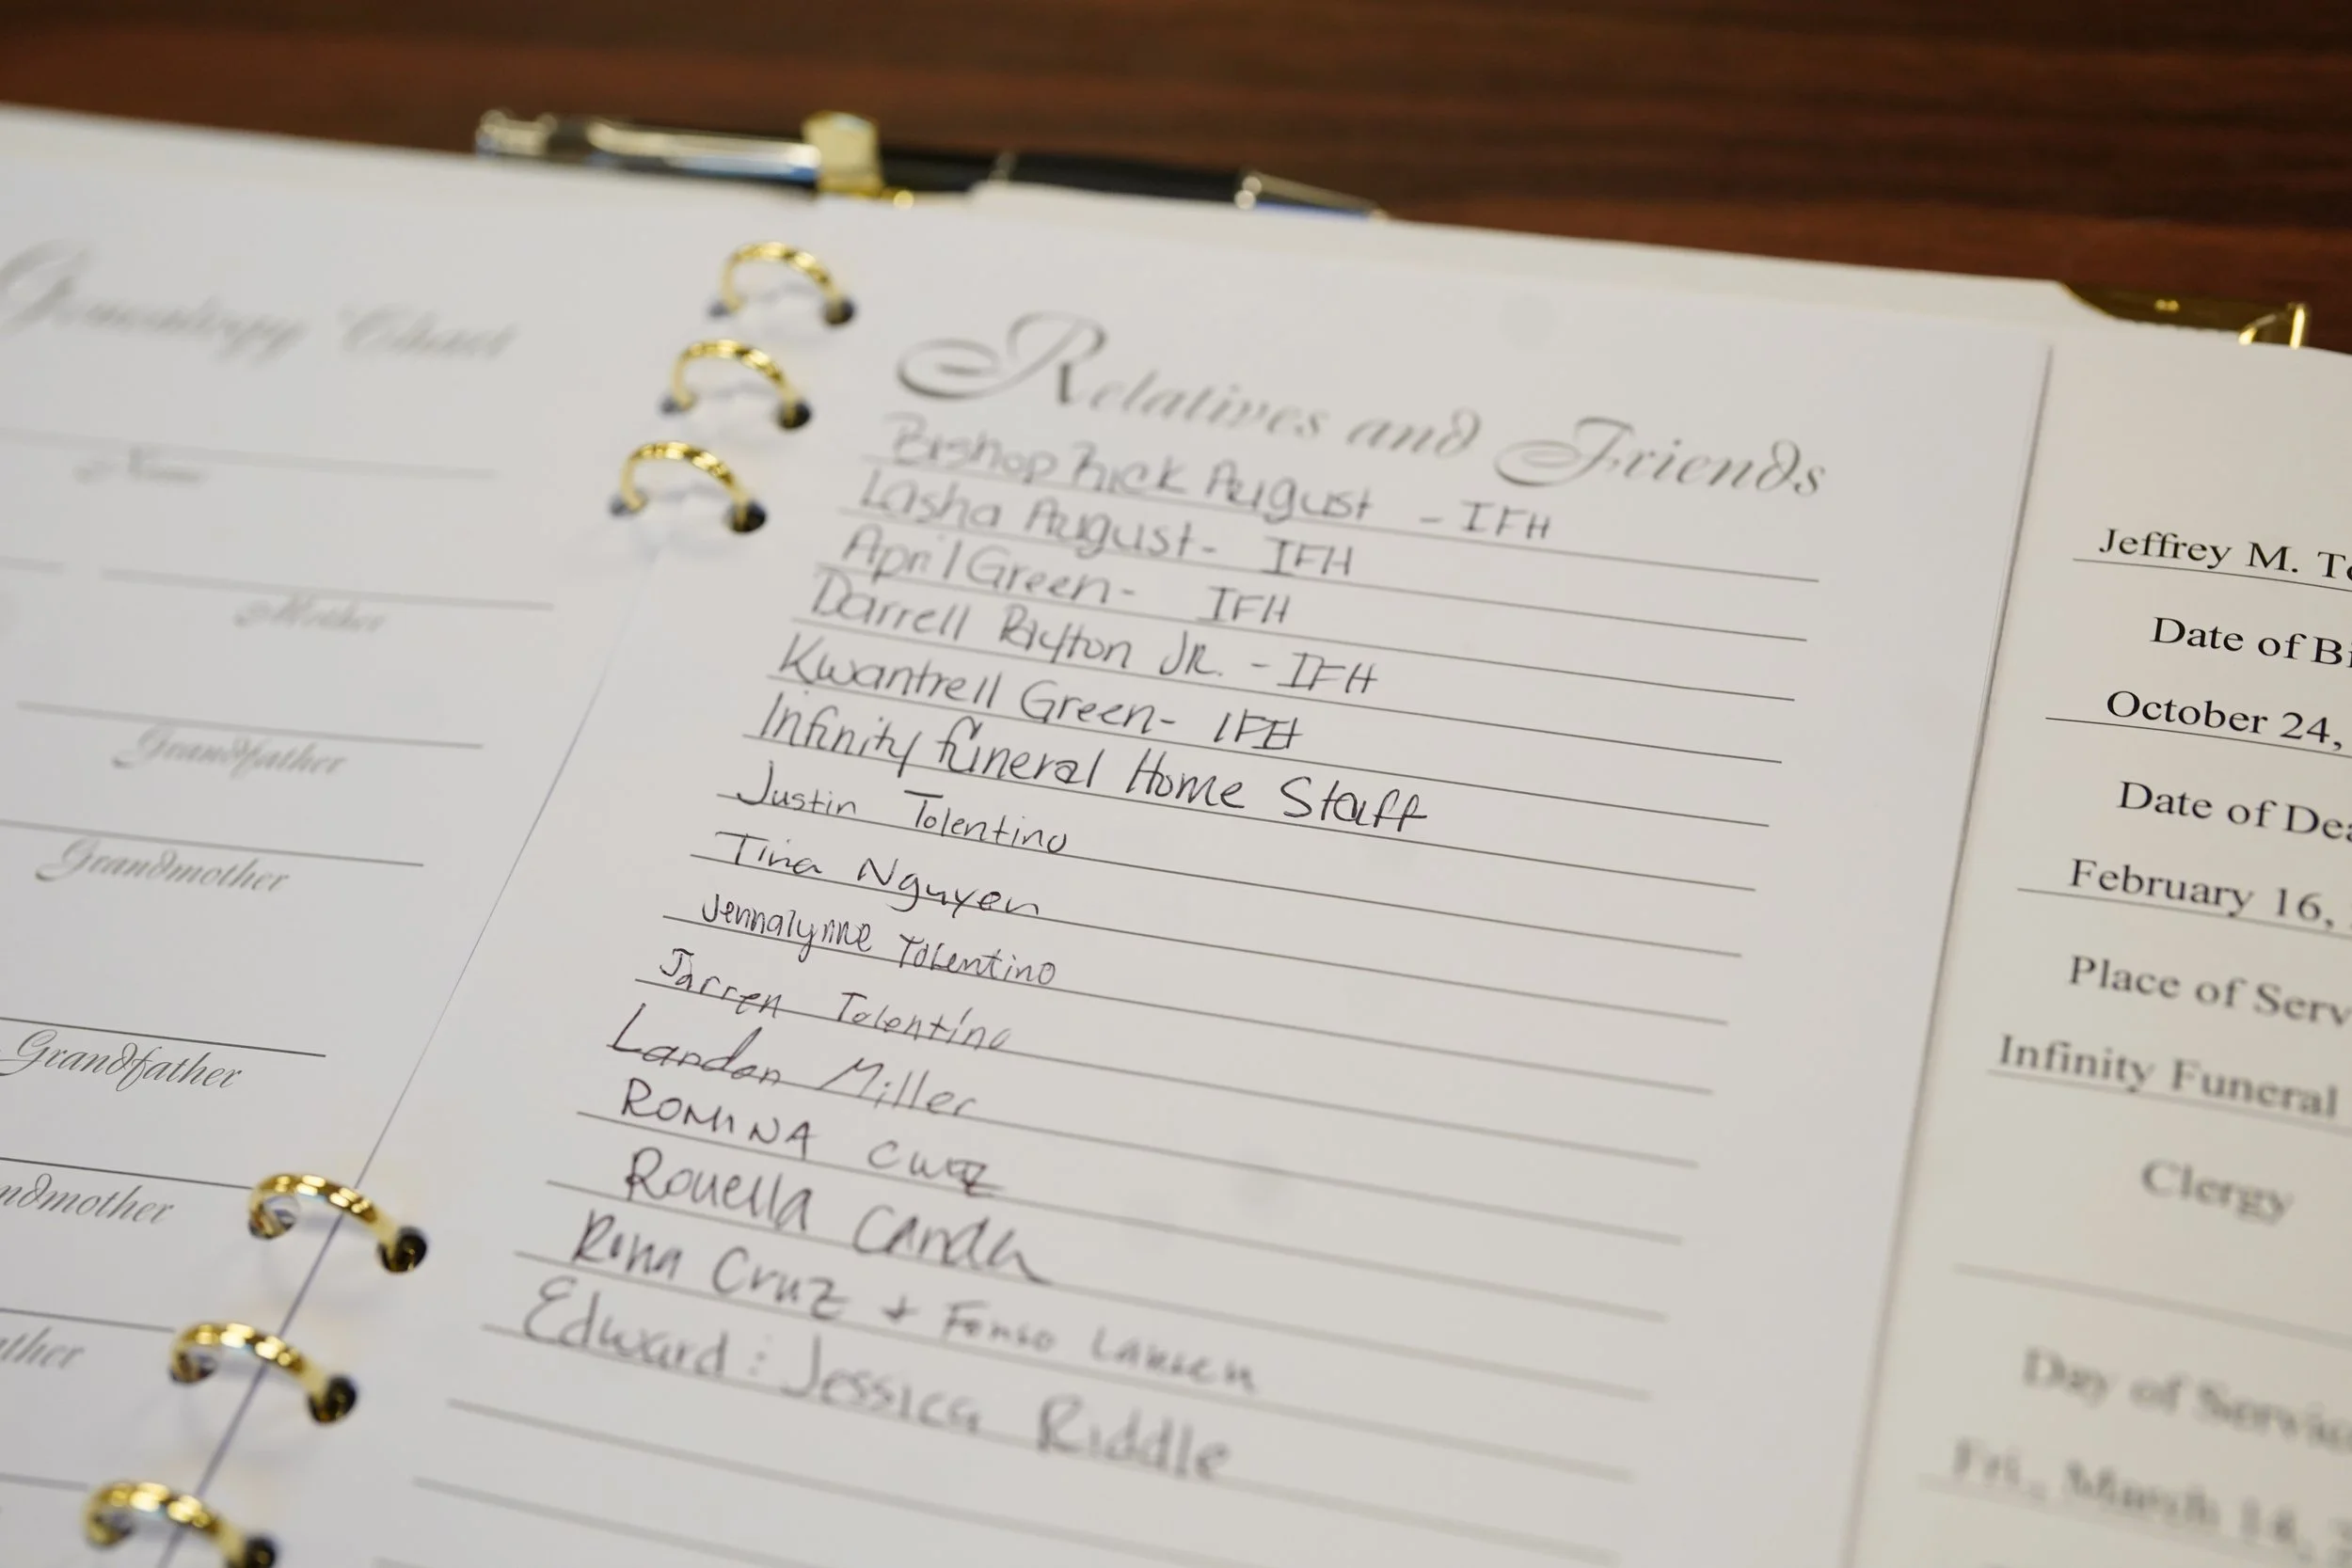 Genealogy Chart
Name
Mother
Grandfather
Grandmother
Grandfather
ndmother
ather
Relatives and Friends
Bishop Rick August - IFH
Lasha August - IFH
April Green - IFH
Darrell Payton JR. - IFH
Kwantrell Green - IFH
Infinity Funeral Home Staff
Justin Tolentino
Tina Nguyen
Jennalynne Tolentino
Jarren Tolentino
Landon Miller
ROMINA CRUZ
Rouella Canda
Rona Cruz +
Edward : Jessica Riddle
Jeffrey M. T
Date of Bi
October 24,
Date of Dea
February 16,
Place of Serv
Infinity Funeral
Clergy
Day of Servic
Fri., March 14,